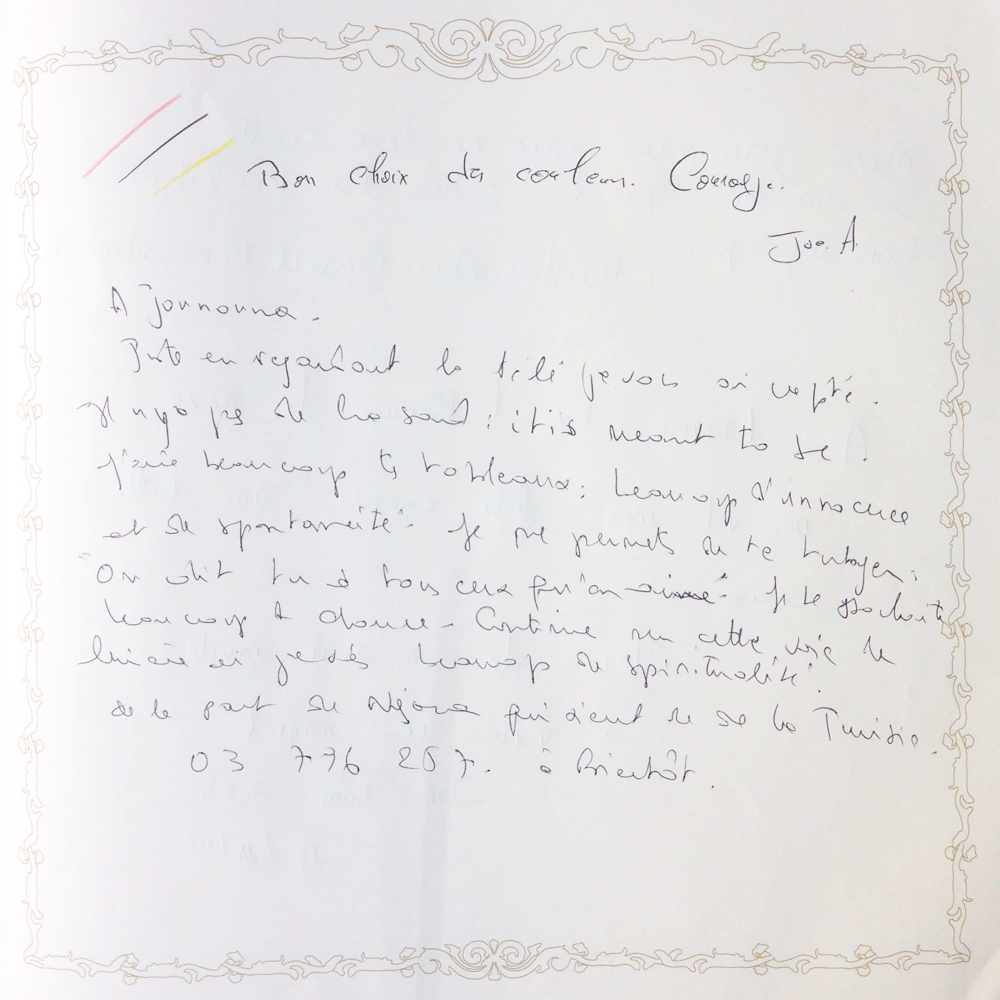 Bon choix des couleurs. Courage.
Joe. A.
A Joumouna.
Juste en regardant la télé je vous ai capté.
Il n'y a pas de hasard : it is meant to be.
J'aime beaucoup tes tableaux ; beaucoup d'innocence
et de spontanéité. Je me permets de te tutoyer ;
"On dit tu à tous ceux qu'on aime". Je te souhaite
beaucoup de chance. Continue sur cette voie de
lumière beaucoup de spiritualité.
de la part de qui vient de la Tunisie.
03 776 257. à Bientôt.